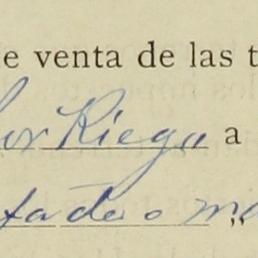 e venta de las t
or Riega a
tado o m